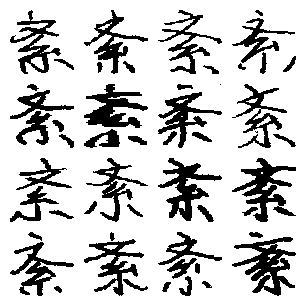 紊紊紊紊
紊紊紊紊
紊紊紊紊
紊紊紊紊